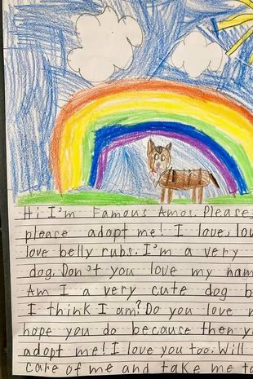 Hi I'm Famous Amos. Please,
please adopt me! I love, lov
love belly rubs. I'm a very
dog. Don't you love my nam
Am I a very cute dog b
I think I am? Do you love m
hope you do because then y
adopt me! I love you too. Will
care of me and take me to